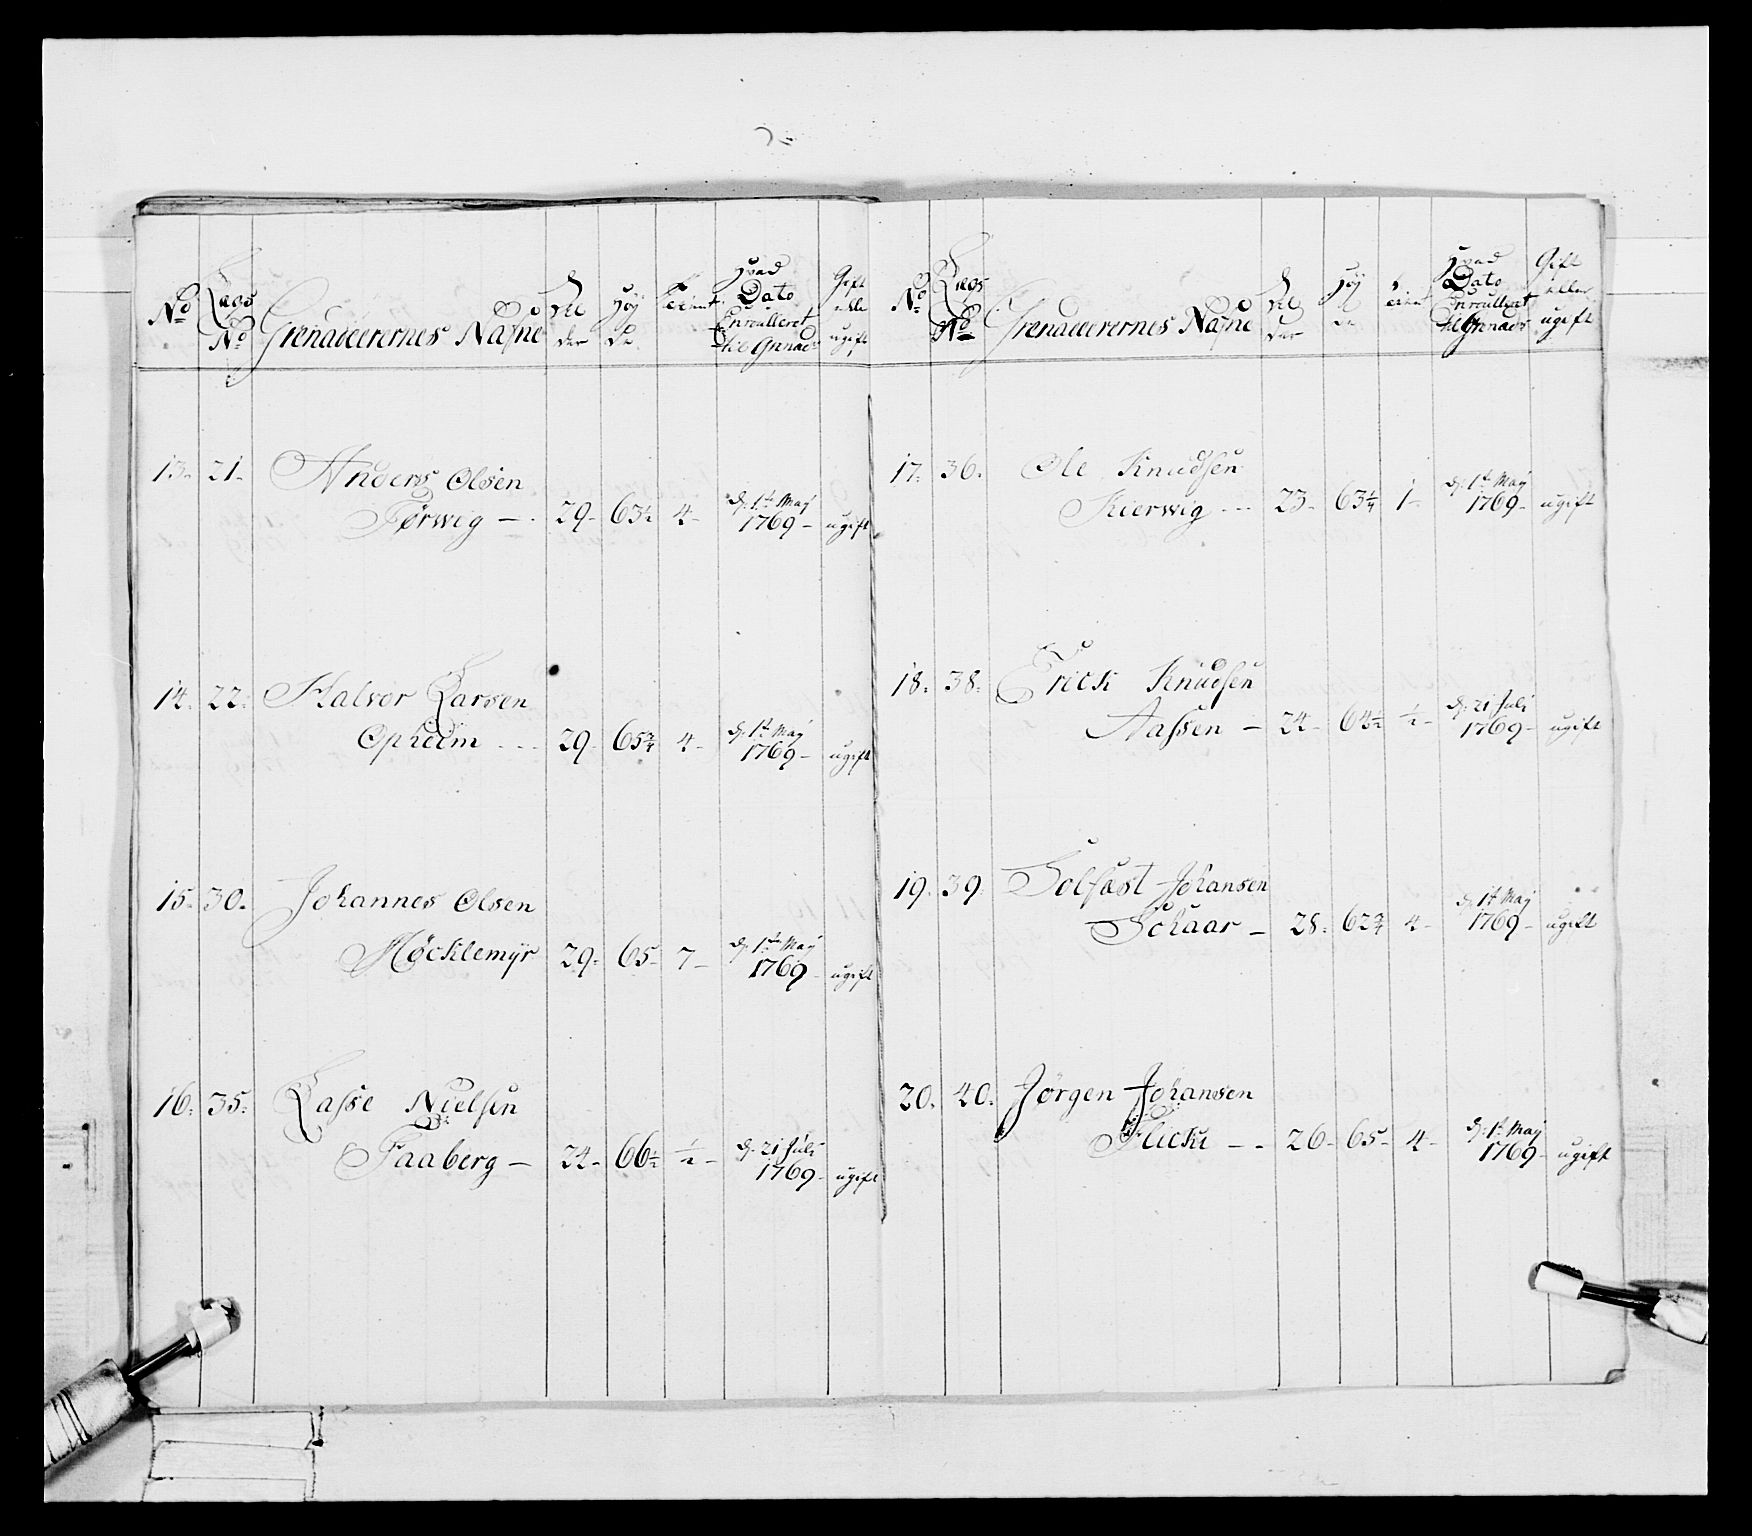 No
Lægs
No
Grenadeerernes Nafne
Al
der
Høy
de
Hvad
Dato
Enroulleret
til Grenad:
Gift
eller
ugift
13. 21. Anders Olsen
Førwig — . 29 - 63½ 4 - d: 1te May
1769 - ugift
14. 22. Halvor Larsen
Opheim . . . 29 - 65¾ 4 - d: 1te May
1769 - ugift
15. 30. Johannes Olsen
Høcklemyr 29 - 65 - 7 - d: 1te May
1769 - ugift
16. 35. Lasse Nielsen
Faaberg — 24 - 66½ ½ - d: 21 Juli
1769 - ugift
No
Lægs
No
Grenadeerernes Nafne
Al
der
Høy
de
Hvad
Dato
Enroulleret
til Grenad:
Gift
eller
ugift
17. 36. Ole Knudsen
Kierwig - - - 23 - 63¼ 1 - d: 1te May
1769 - ugift
18. 38. Erick Knudsen
Aassen — 24 - 64½ ½ - d: 21 Juli
1769 - ugift
19. 39. Solfæst Johansen
Schaar — 28. 62¾ 4 - d: 1te May
1769 - ugift
20. 40. Jørgen Johansen
Flicke — - 26 - 65 - 4 - d: 1te May
1769 - ugift